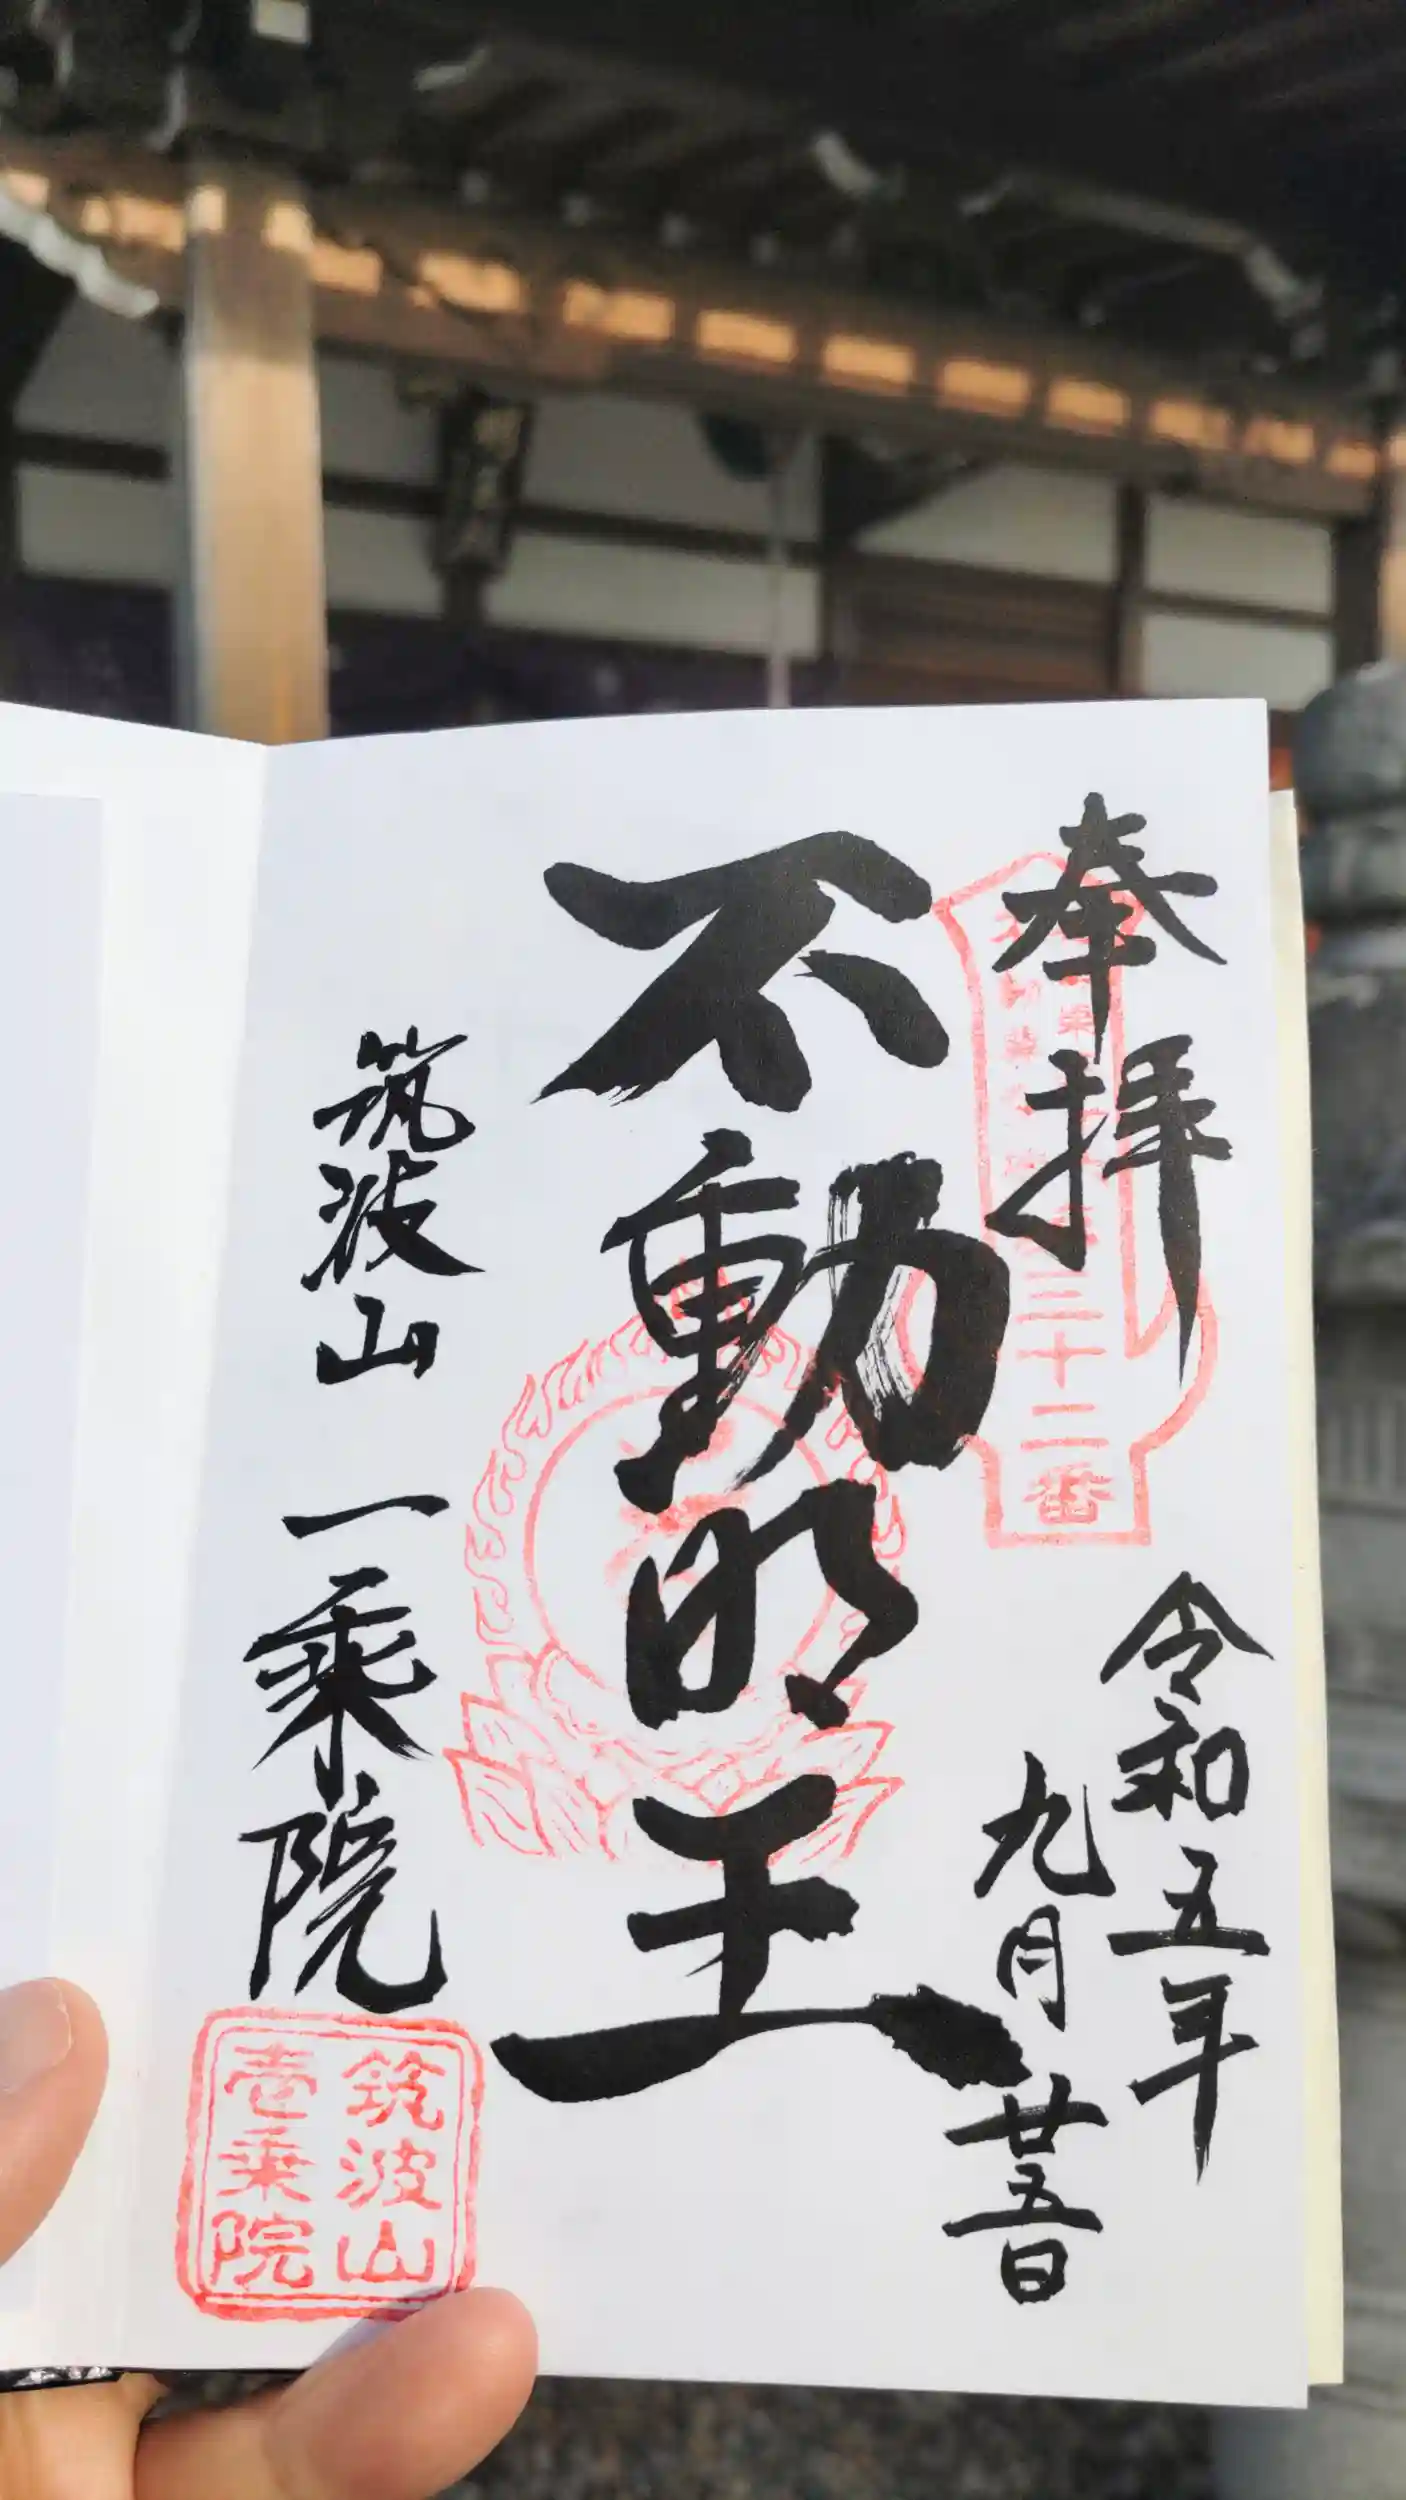 奉拝
令和五年
九月廿五日
三十二番
不動明王
筑波山 一乗院
筑波山
壱乗院